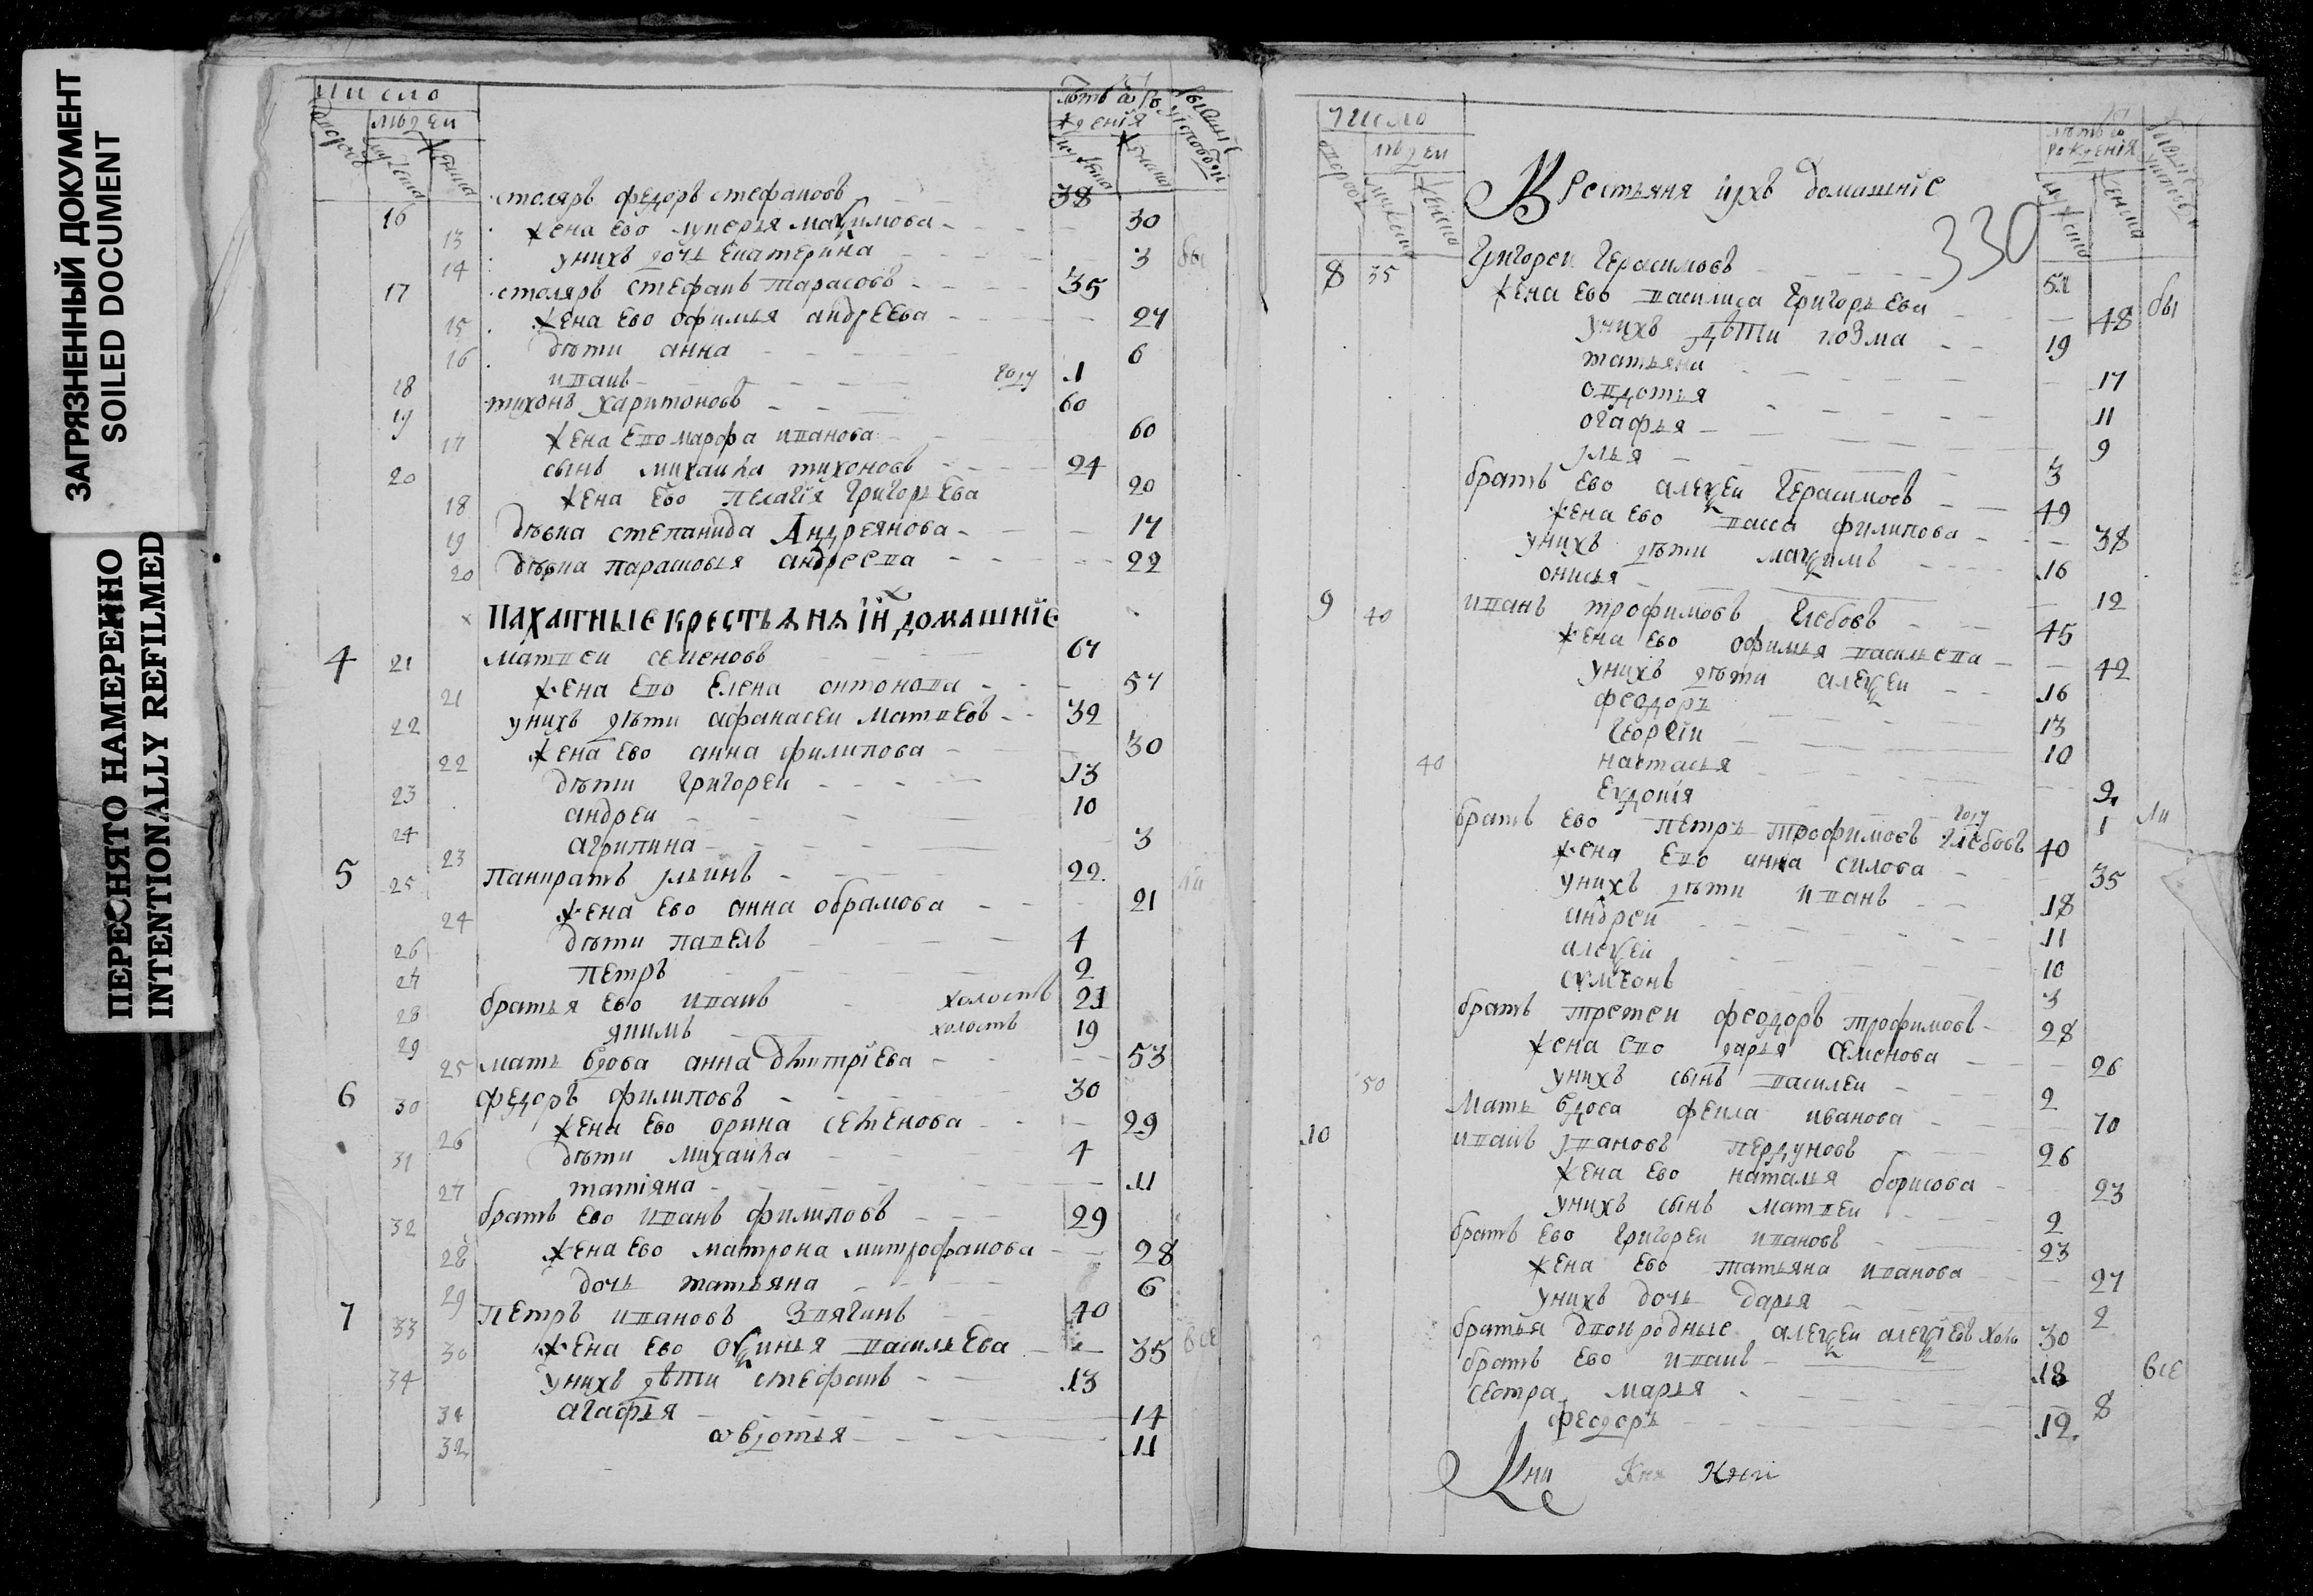 ЗАГРЯЗНЕННЫЙ ДОКУМЕНТ
SOILED DOCUMENT
ПЕРЕСНЯТО НАМЕРЕННО
INTENTIONALLY REFILMED
число
людеи
столяръ федоръ стефановъ 38
16 13 жена ево лукерья маѯимова 30
14 унихъ дочь Екатерина 3
17 столяръ стефанъ тарасовъ 35
15 жена ево офимья андрѢева 27
16 дѣти анна 6
18 иванъ году 1
19 тихонъ харитоновъ 60
17 жена Ево марфа иванова 60
20 сынъ михаила тихоновъ 24
18 жена Ево пелагїя григорьева 20
19 дѣвка степанида Андреянова 17
20 дѣвка парасковья андреева 22
пахатные крестьяня їй домашнїе
4 21 матвеи семеновъ 67
21 жена Ево Елена онтонова 57
22 унихъ дѣти афанасеи матвеевъ 32
22 жена Ево анна филипова 30
23 дѣти григореи 13
24 андреи 10
23 агрипина 3
5 25 панкратъ ильинъ 22
24 жена Ево анна обрамова 21
26 дѣти павелъ 4
27 петръ 2
28 братья Ево иванъ холостъ 21
29 якимъ холостъ 19
25 мать вдова анна дмитрїева 53
6 30 федоръ филиповъ 30
26 жена Ево орина семенова 29
31 дѣти михаила 4
27 татїяна 11
32 братъ Ево иванъ филиповъ 29
28 жена Ево матрона митрофанова 28
29 дочь татьяна 6
7 33 петръ ивановъ Звягинъ 40
30 жена Ево оѯинья васильева 35 все
34 унихъ дѣти стефанъ 13
31 агафья 14
32 ѡвдотья 11
число
людеи
Крестьяня ихъ домашнїе
330
8 35 григореи герасимовъ 52
жена Ево василиса григорьева 48 бы
унихъ дѣти козма 19
татьяна 17
овдотья 11
огафья 9
илья 3
братъ Ево алеѯеи герасимовъ 49
жена Ево васса филипова 38
унихъ дѣти маѯимъ 16
онисья 12
9 40 иванъ трофимовъ глебовъ 45
жена Ево офимья васильева 42
унихъ дѣти алеѯеи 16
феодоръ 13
георгїи 10
40 настасья 9
Евдокия году 1
братъ Ево петръ трофимовъ глебовъ 40
жена Ево анна силова 35
унихъ дѣти иванъ 18
андреи 11
алеѯеи 10
сѵмеонъ 3
братъ третеи феодоръ трофимовъ 28
жена Ево дарья семенова 26
50 унихъ сынъ василеи 2
мать вдова фекла иванова 70
10 иванъ ивановъ пердуновъ 26
жена Ево наталья борисова 23
унихъ сынъ матвеи 2
братъ Ево григореи ивановъ 23
жена Ево татьяна иванова 27
унихъ дочь дарья 2
братья двоюродные алеѯеи алеѯїевъ холо 30
братъ Ево иванъ 18 все
сестра марья 8
феодоръ 12
Кни Кня Кнзи